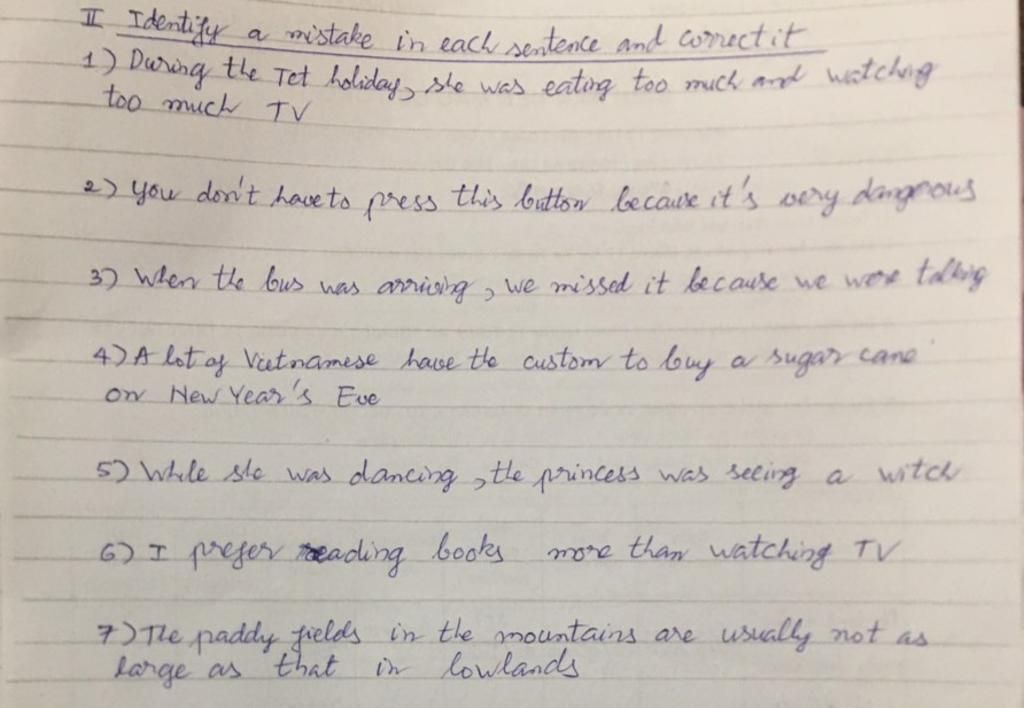 II Identify a mistake in each sentence and correct it
1) During the Tet holiday, she was eating too much and watching
too much TV
2) You don't have to press this button because it's very dangerous
3) When the bus was arriving, we missed it because we were talking
4) A lot of Vietnamese have the custom to buy a sugar cane
on New Year's Eve
5) While she was dancing, the princess was seeing a witch
6) I prefer reading books more than watching TV
7) The paddy fields in the mountains are usually not as
large as that in lowlands